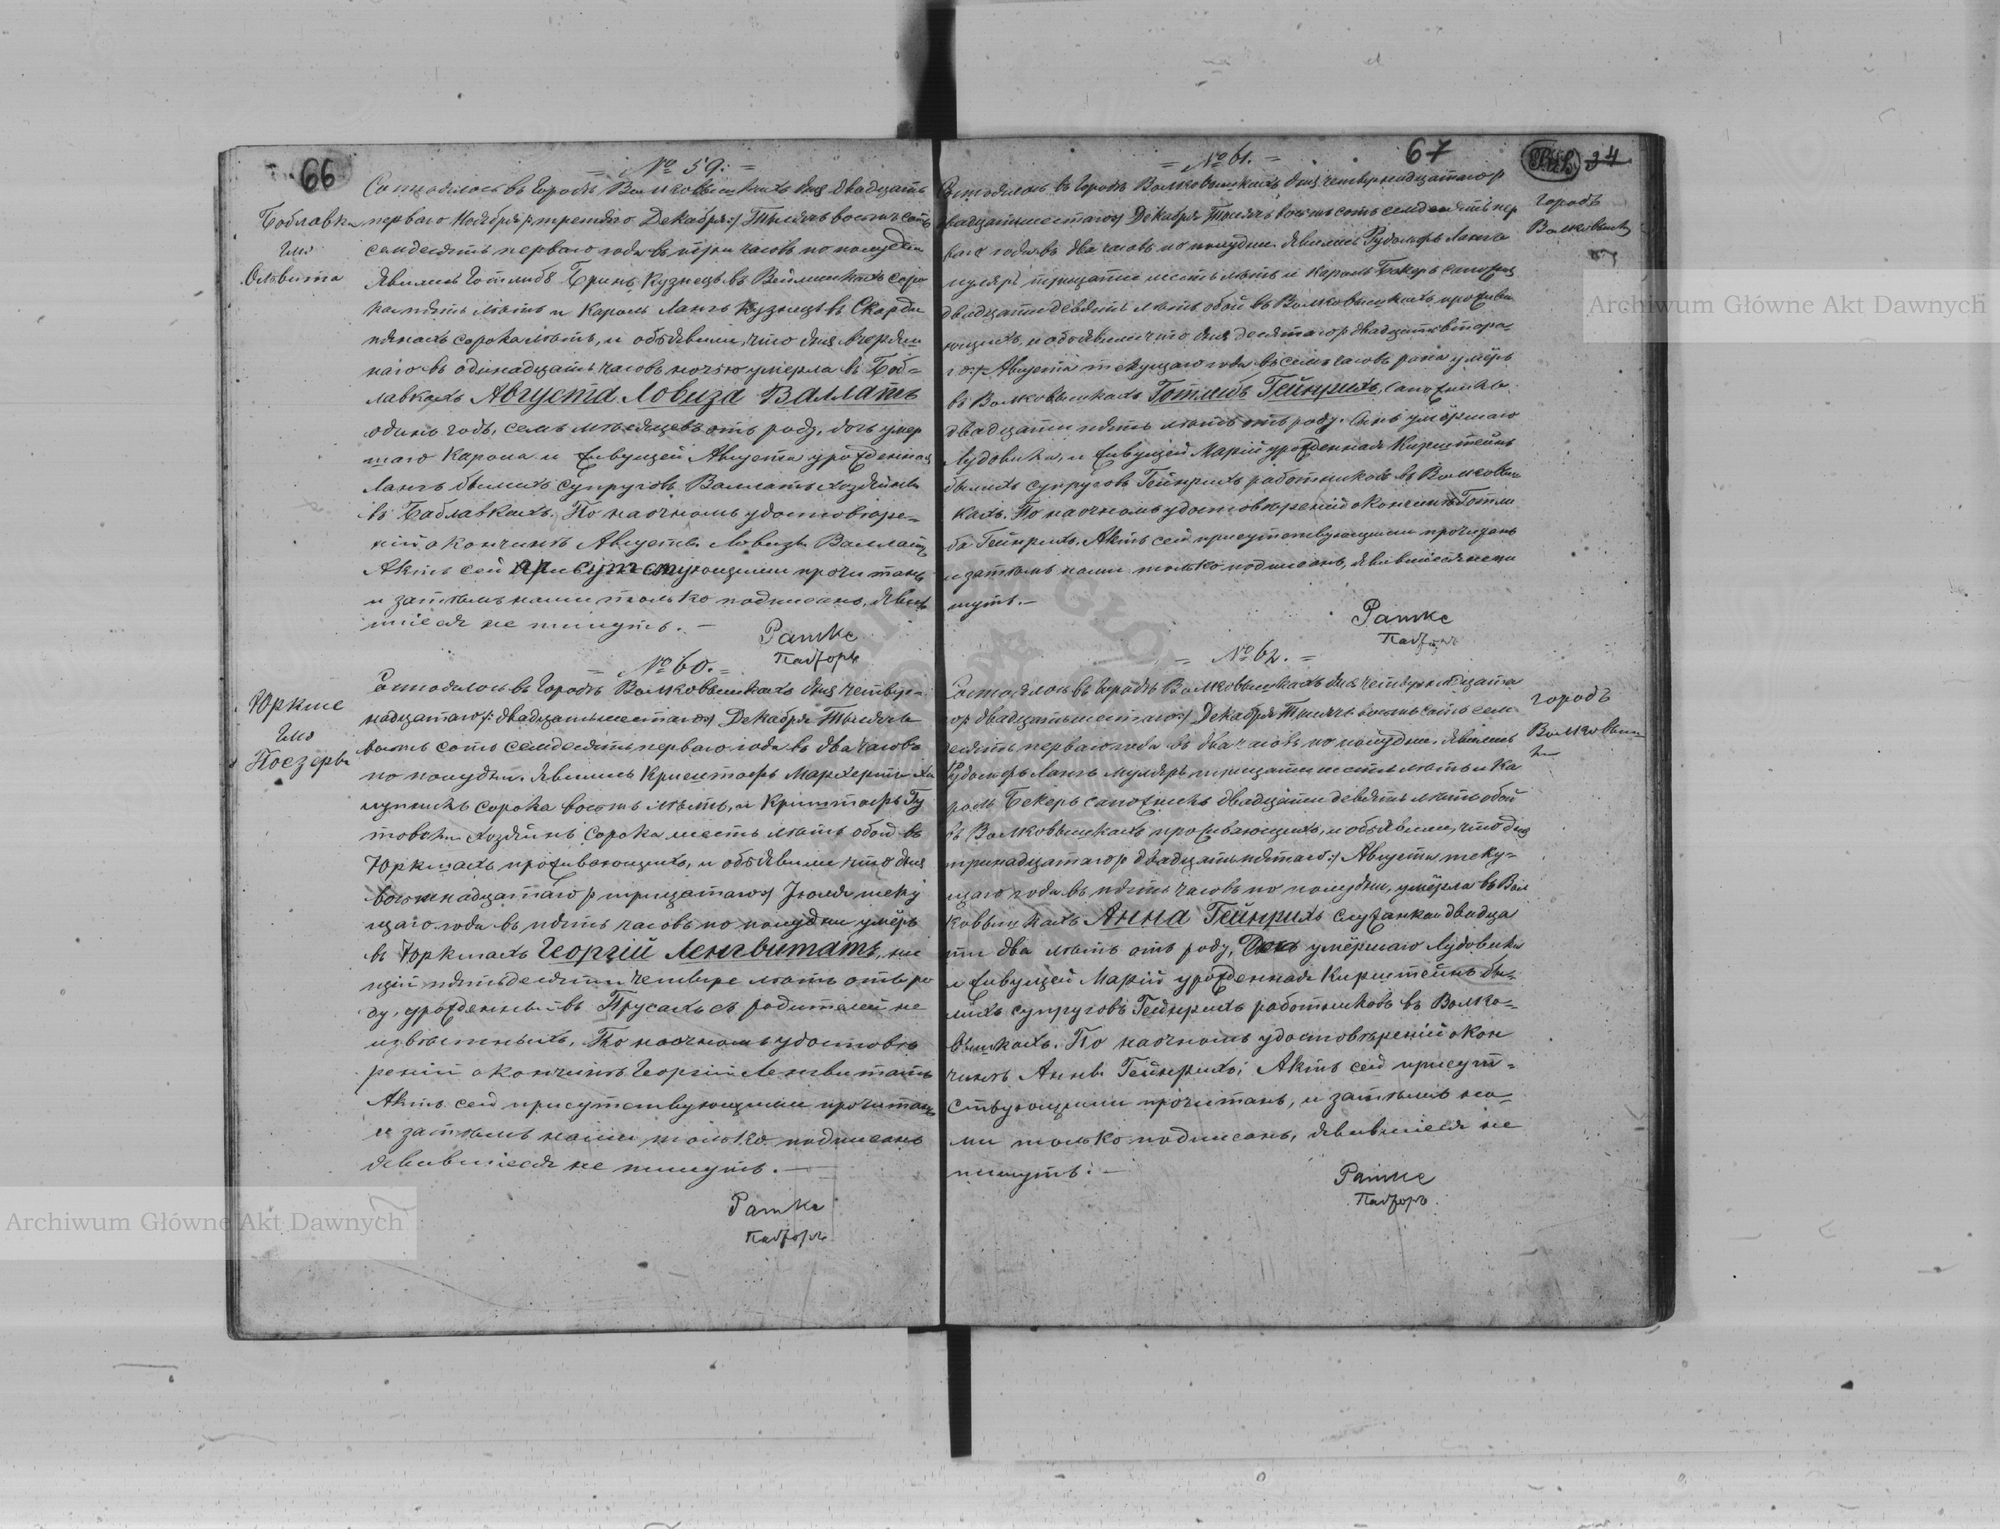 66
№ 59.
Боблавки
Гмо
Ольвита
Состоялось въ Городѣ Волковышкахъ дня двадцать
перваго Ноября /:третяго Декабря:/ Тысяча восемь сотъ
семдесятъ перваго года въ три часовъ по полудни
Явились Готлибъ Бринъ Кузнецъ въ сорокъ
пять лѣтъ и Кароль Лангъ Кузнецъ въ
сорока лѣтъ, и объявили, что дня вчерашняго
въ одинадцать часовъ ночью умерла въ Боб=
лавкахъ Августа Ловиза Валлатъ
одинъ годъ, семь мѣсяцевъ отъ роду, дочь умер
шаго Кароля и живущей Августы урожденная
Лангъ бывшихъ супруговъ Валлатъ хозяевъ
въ Баблавкахъ. По наочномъ удостовѣре=
ніи о кончинѣ Августы Ловизы Валлатъ
Актъ сей присутствующими прочитанъ
и затѣмъ нами только подписанъ, явив
шіеся не пишутъ. —
Ратке
Пасторъ
№ 60.
Юркше
Гмо
Поезеры
Состоялось въ Городѣ Волковышкахъ дня четыр=
надцатаго /:двадцать шестаго:/ Декабря Тысяча
восемь сотъ семдесятъ перваго года въ два часовъ
по полудни. Явились Криштофъ
сорока восемь лѣтъ, и Криштофъ Гу
товскій хозяинъ сорока шесть лѣтъ обой въ
Юркшахъ проживающихъ, и объявили что дня
восемнадцатаго /:тридцатаго:/ Іюля теку
щаго года въ пять часовъ по полудни умёръ
въ Юркшахъ Георгій Ленгвитатъ, ни
щій пятьдесятъ четыре лѣтъ отъ ро
ду, урожденный въ Прусахъ съ родителей не
извѣстныхъ. По наочномъ удостовѣ
реніи о кончинѣ Георгія Ленгвитатъ
Актъ сей присутствующими прочитанъ
и затѣмъ нами только подписанъ
явившіеся не пишутъ. —
Ратке
Пасторъ
67
34
№ 61.
Городъ
Волковышки
Состоялось въ Городѣ Волковышкахъ дня четырнадцатаго /:
двадцать шестаго:/ Декабря Тысяча восемь сотъ семдесятъ пер
ваго года въ два часовъ по полудни. Явились Рудольфъ Лангъ
муляръ тридцати шесть лѣтъ и Кароль Бекеръ сапожникъ
двадцати девять лѣтъ обой въ Волковышкахъ прожива
ющихъ, и объявили что дня десятаго /:двадцать втора=
го:/ Августа текущаго года въ семь часовъ рана умёръ
въ Волковышкахъ Готлибъ Гейнрихъ, сапожникъ
двадцати пять лѣтъ отъ роду. Сынъ умёршаго
Лудовика, и живущей Марій урожденная Кирштейнъ
бывшихъ супруговъ Гейнрихъ работниковъ въ Волковыш
кахъ. По наочномъ удостовѣреній о кончинѣ Готли
ба Гейнрихъ. Актъ сей присутствующими прочитанъ
и затѣмъ нами только подписанъ, явившіеся не пи
шутъ. —
Ратке
Пасторъ
№ 62.
Городъ
Волковыш
ки
Состоялось въ Городѣ Волковышкахъ дня четырнадцата
го /:двадцать шестаго:/ Декабря Тысяча восемь сотъ сем
десятъ перваго года въ два часовъ по полудни. Явились
Рудольфъ Лангъ муляръ тридцати шесть лѣтъ и Ка
роль Бекеръ сапожникъ двадцати девять лѣтъ обой
въ Волковышкахъ проживающихъ, и объявили, что дня
тринадцатаго /:двадцать пятаго:/ Августа теку=
щаго года въ пять часовъ по полудни, умёрла въ Вол
ковышкахъ Анна Гейнрихъ служанка двадца
ти два лѣтъ отъ роду, Дочь умёршаго Лудовика
и живущей Марій урожденная Кирштейнъ быв=
шихъ супруговъ Гейнрихъ работниковъ въ Волко=
вышкахъ. По наочномъ удостовѣреній о кон
чинѣ Анны Гейнрихъ; Актъ сей присут=
ствующими прочитанъ, и затѣмъ на=
ми только подписанъ, явившіеся не
пишутъ. —
Ратке
Пасторъ.
Archiwum Główne Akt Dawnych
Archiwum Główne Akt Dawnych